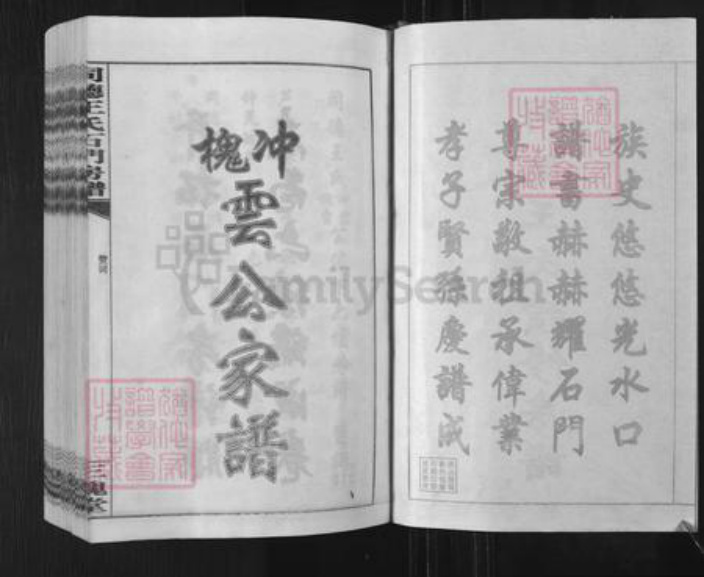 族史悠悠光水口
譜書赫赫耀石門
尊宗敬祖承偉業
孝子賢孫慶譜成
冲槐
雲公家譜
同德王氏石門房譜
三槐堂
FamilySearch